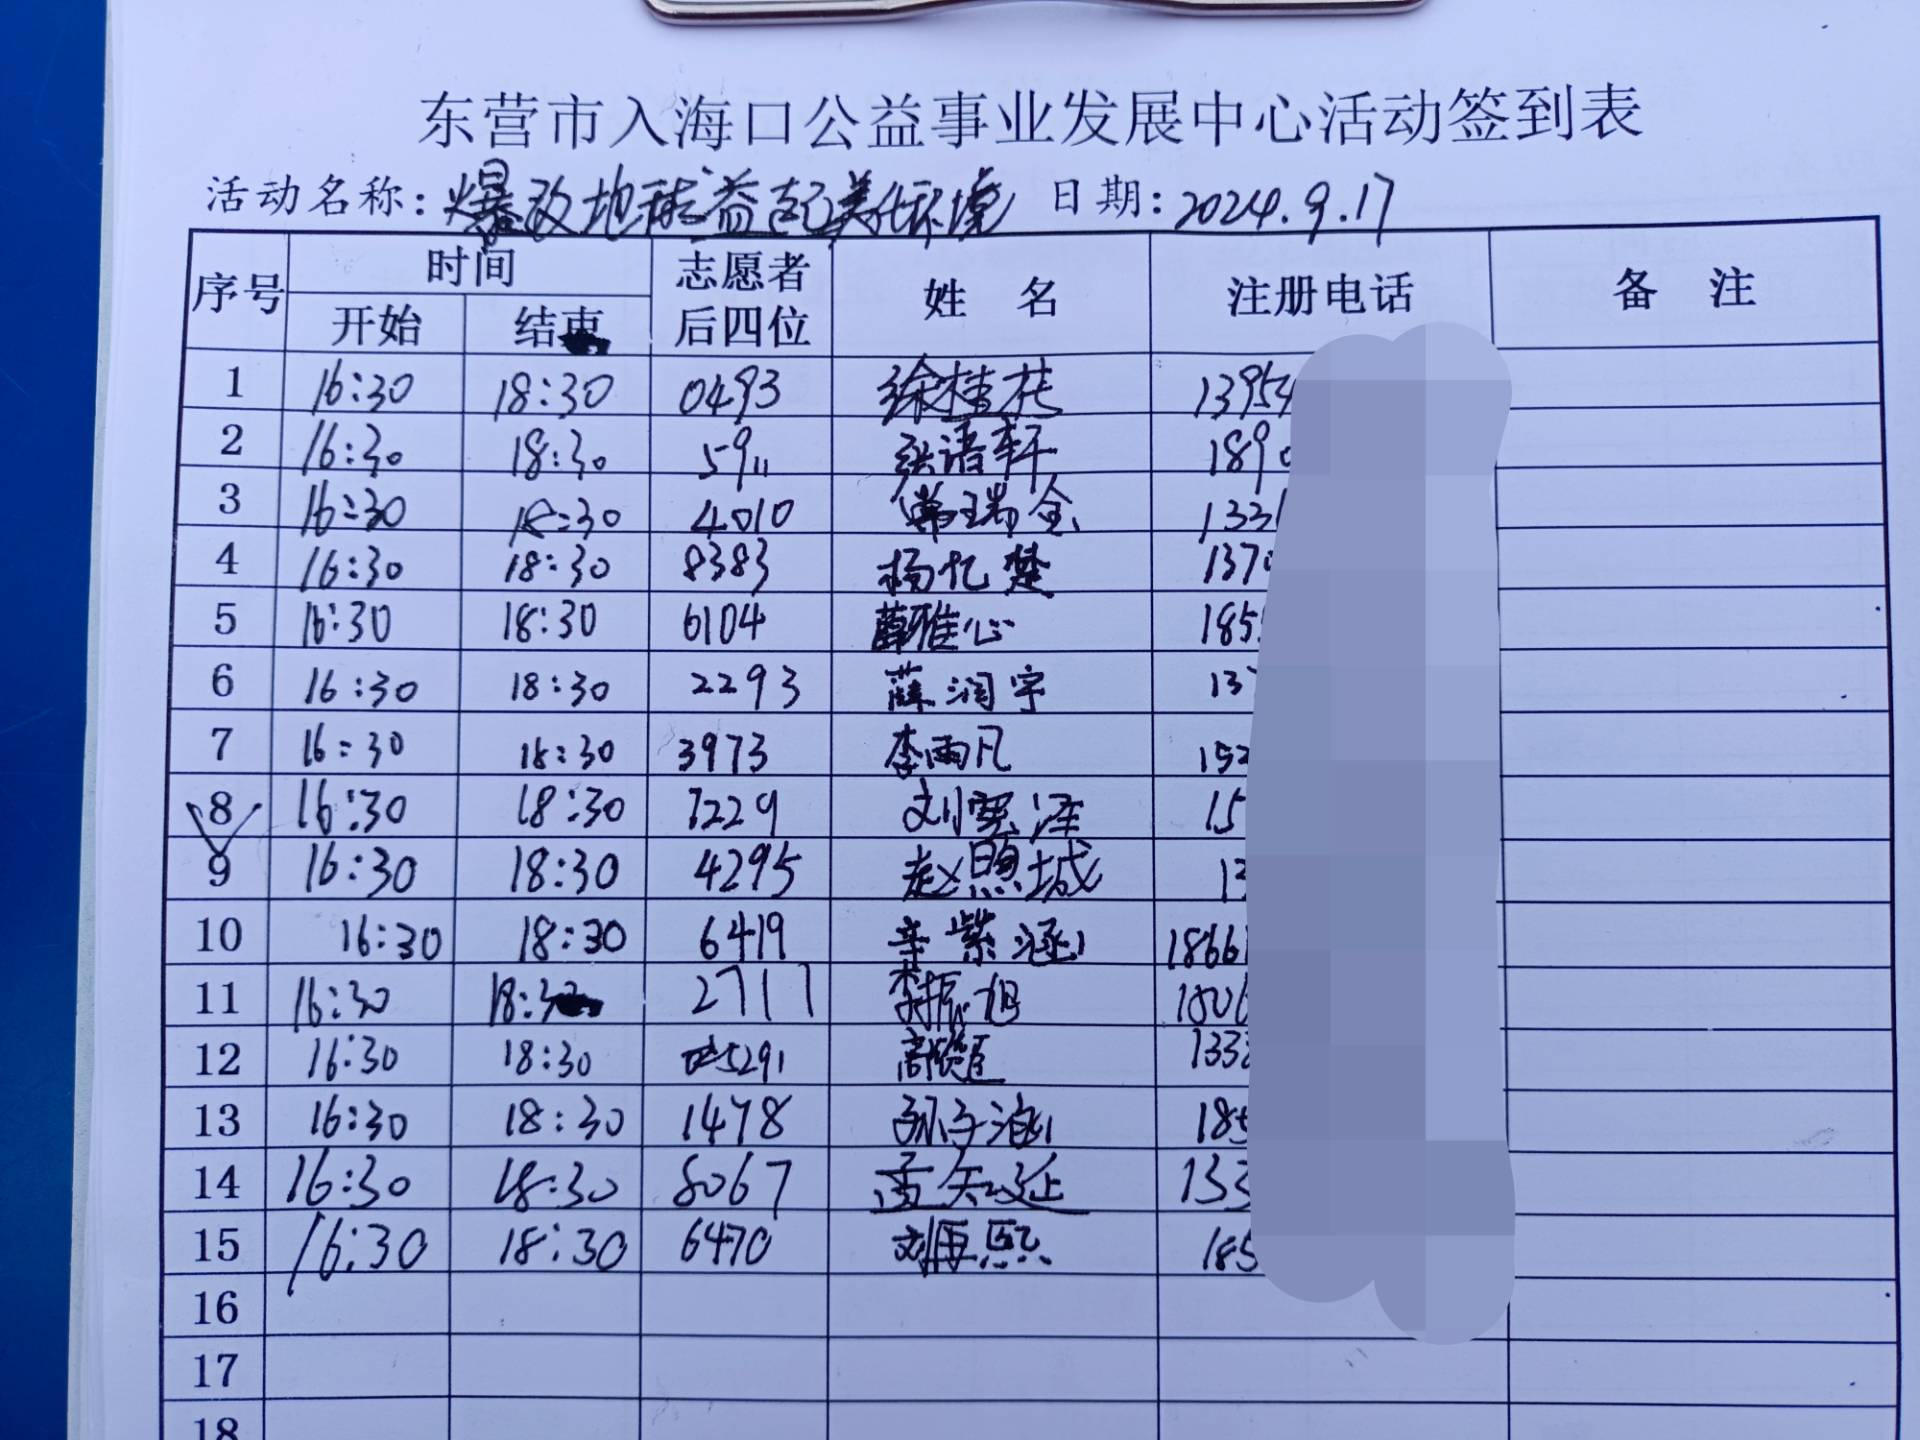 东营市入海口公益事业发展中心活动签到表
活动名称：爆改地球益起美化环境 日期：2024.9.17
序号 时间 志愿者后四位 姓名 注册电话 备注
开始 结束
1 16:30 18:30 0493 徐桂花 1395
2 16:30 18:30 5911 张语轩 189
3 16:30 18:30 4010 常瑞金 133
4 16:30 18:30 8383 杨忆楚 137
5 16:30 18:30 6104 薛雅心 185
6 16:30 18:30 2293 薛润宇 13
7 16:30 18:30 3973 李雨凡 152
8 16:30 18:30 7229 刘泽 15
9 16:30 18:30 4295 赵照城 13
10 16:30 18:30 6419 辛紫涵 1866
11 16:30 18:30 2717 李振旭 180
12 16:30 18:30 5291 高 133
13 16:30 18:30 1478 孙子涵 185
14 16:30 18:30 8067 孟知延 133
15 16:30 18:30 6470 刘再熙 185
16
17
18